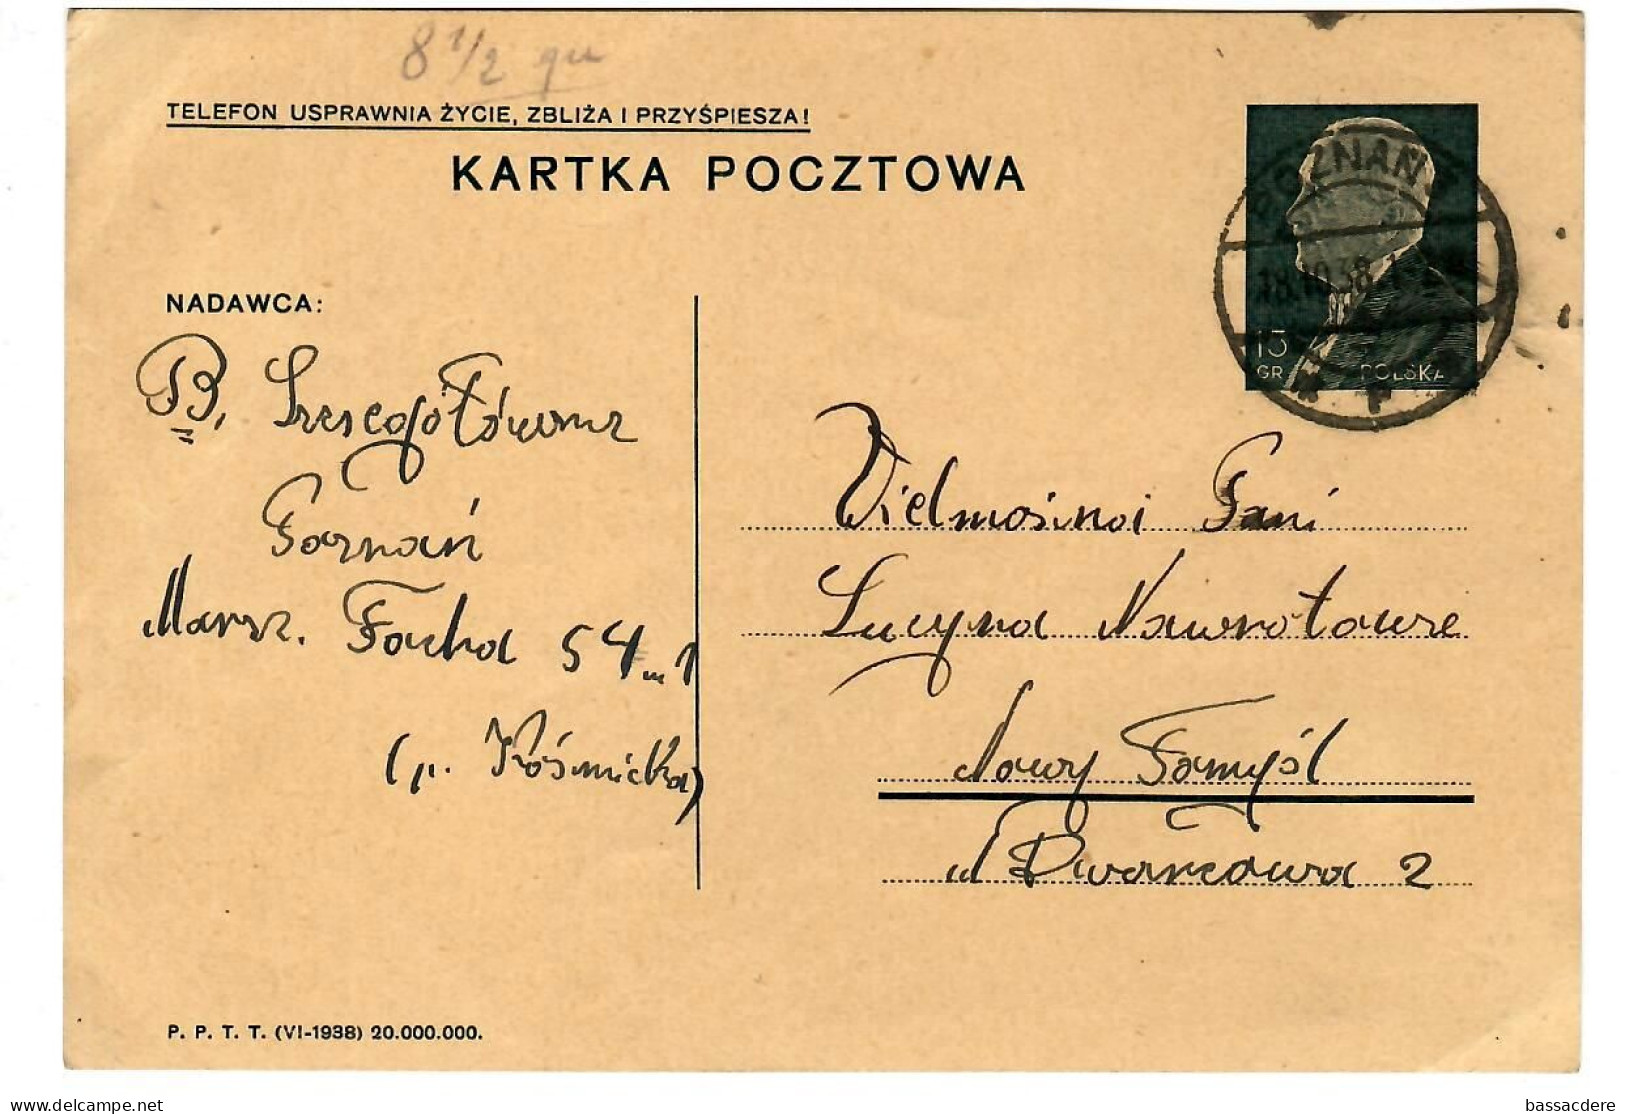 8 1/2
TELEFON USPRAWNIA ŻYCIE, ZBLIŻA I PRZYŚPIESZA!
KARTKA POCZTOWA
POZNAŃ
18.10.38
15
GR
POLSKA
NADAWCA:
B.
Poznań
Marsz. Focha 54 m 1
(p. Kośmicka)
Wielmożna Pani
Lucyna
Nowy Tomyśl
Dworcowa 2
P. P. T. T. (VI-1938) 20.000.000.
delcampe.net
bassacdere